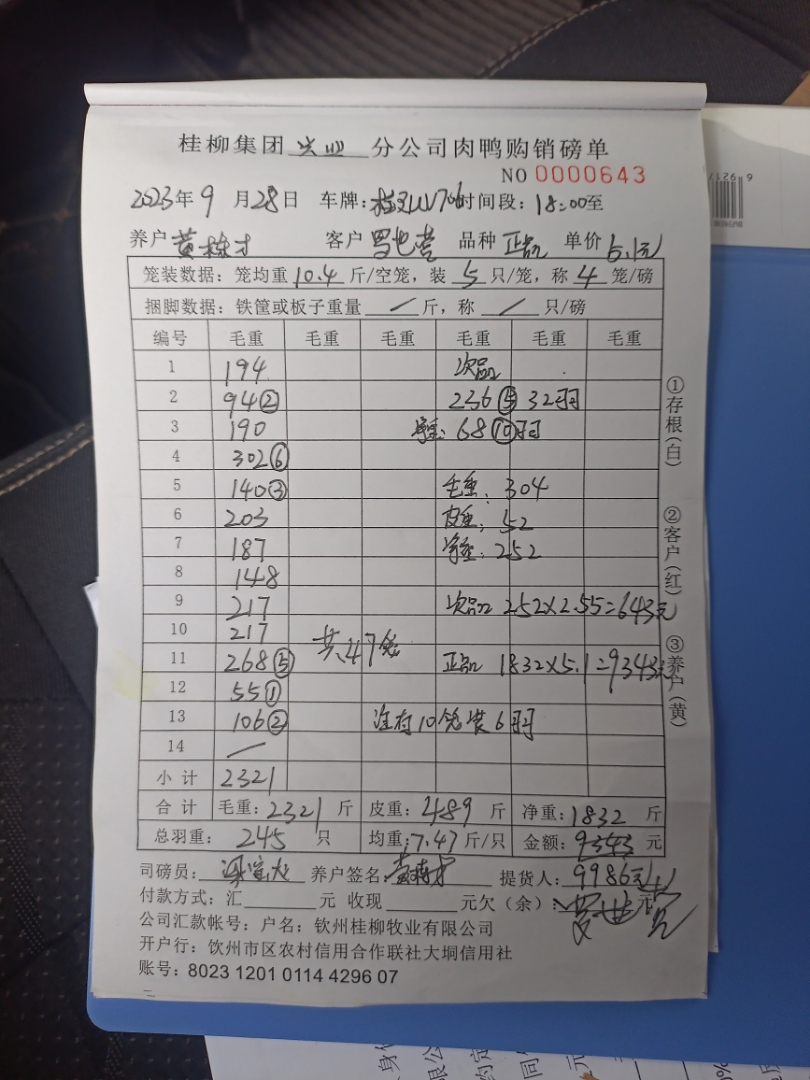 桂柳集团 兴业 分公司肉鸭购销磅单
NO 0000643
2023年 9 月 28日 车牌: 时间段: 18:00至
养户 黄栋才 客户 罗世营 品种 正品 单价 5.1元
笼装数据: 笼均重 10.4 斤/空笼, 装 5 只/笼, 称 4 笼/磅
捆脚数据: 铁筐或板子重量 / 斤, 称 / 只/磅
编号 毛重 毛重 毛重 毛重 毛重 毛重
1 194 次品
2 94② 236⑤ 32羽
3 190 净重: 68⑩羽
4 302⑥
5 140③ 毛重: 304
6 203 皮重: 52
7 187 净重: 252
8 148
9 217 次品 252×2.55=643元
10 217 共47笼
11 268⑤ 正品 1832×5.1=9343元
12 55①
13 106② 注有10笼装6羽
14 /
小计 2321
合计 毛重: 2321 斤 皮重: 489 斤 净重: 1832 斤
总羽重: 245 只 均重: 7.47斤/只 金额: 9343 元
司磅员: 养户签名: 提货人: 9986元
付款方式: 汇 元 收现 元欠(余): 罗世营 元
公司汇款帐号: 户名: 钦州桂柳牧业有限公司
开户行: 钦州市区农村信用合作联社大垌信用社
账号: 8023 1201 0114 4296 07
①存根(白)
②客户(红)
③养户(黄)